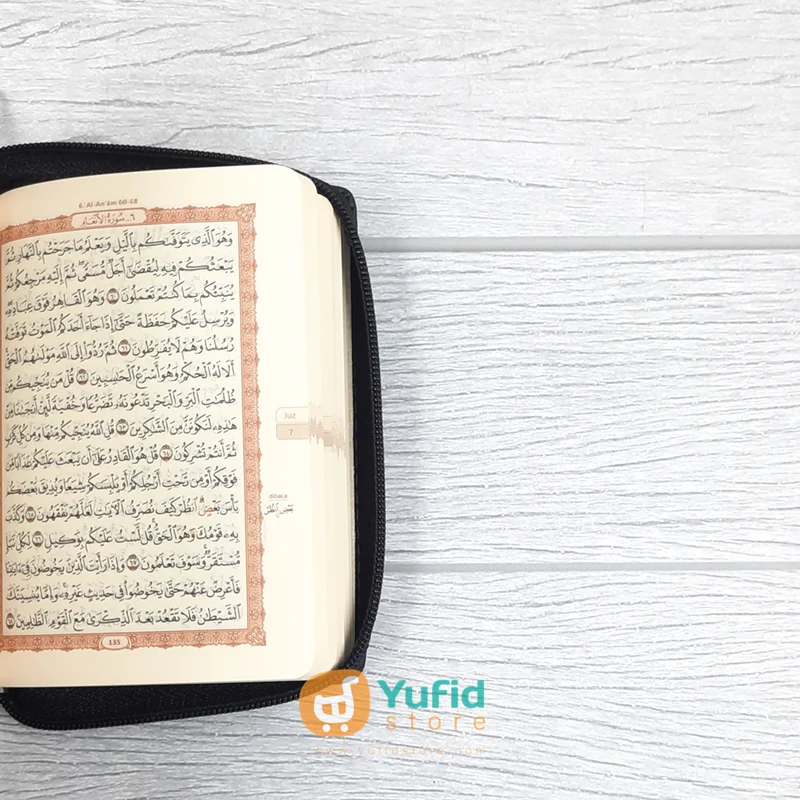 6. Al-An'ām 60-68
٦. سورة الأنعام
وَهُوَ ٱلَّذِى يَتَوَفَّىٰكُم بِٱلَّيْلِ وَيَعْلَمُ مَا جَرَحْتُم بِٱلنَّهَارِ ثُمَّ
يَبْعَثُكُمْ فِيهِ لِيُقْضَىٰٓ أَجَلٌ مُّسَمًّى ثُمَّ إِلَيْهِ مَرْجِعُكُمْ ثُمَّ
يُنَبِّئُكُم بِمَا كُنتُمْ تَعْمَلُونَ ٦٠ وَهُوَ ٱلْقَاهِرُ فَوْقَ عِبَادِهِۦ
وَيُرْسِلُ عَلَيْكُمْ حَفَظَةً حَتَّىٰٓ إِذَا جَآءَ أَحَدَكُمُ ٱلْمَوْتُ تَوَفَّتْهُ
رُسُلُنَا وَهُمْ لَا يُفَرِّطُونَ ٦١ ثُمَّ رُدُّوٓا۟ إِلَى ٱللَّهِ مَوْلَىٰهُمُ ٱلْحَقِّ
أَلَا لَهُ ٱلْحُكْمُ وَهُوَ أَسْرَعُ ٱلْحَٰسِبِينَ ٦٢ قُلْ مَن يُنَجِّيكُم مِّن
ظُلُمَٰتِ ٱلْبَرِّ وَٱلْبَحْرِ تَدْعُونَهُۥ تَضَرُّعًا وَخُفْيَةً لَّئِنْ أَنجَىٰنَا مِنْ
هَٰذِهِۦ لَنَكُونَنَّ مِنَ ٱلشَّٰكِرِينَ ٦٣ قُلِ ٱللَّهُ يُنَجِّيكُم مِّنْهَا وَمِن كُلِّ كَرْبٍ
ثُمَّ أَنتُمْ تُشْرِكُونَ ٦٤ قُلْ هُوَ ٱلْقَادِرُ عَلَىٰٓ أَن يَبْعَثَ عَلَيْكُمْ عَذَابًا مِّن
فَوْقِكُمْ أَوْ مِن تَحْتِ أَرْجُلِكُمْ أَوْ يَلْبِسَكُمْ شِيَعًا وَيُذِيقَ بَعْضَكُم
بَأْسَ بَعْضٍ ٱنظُرْ كَيْفَ نُصَرِّفُ ٱلْءَايَٰتِ لَعَلَّهُمْ يَفْقَهُونَ ٦٥ وَكَذَّبَ
بِهِۦ قَوْمُكَ وَهُوَ ٱلْحَقُّ قُل لَّسْتُ عَلَيْكُم بِوَكِيلٍ ٦٦ لِّكُلِّ نَبَإٍ
مُّسْتَقَرٌّ وَسَوْفَ تَعْلَمُونَ ٦٧ وَإِذَا رَأَيْتَ ٱلَّذِينَ يَخُوضُونَ فِىٓ ءَايَٰتِنَا
فَأَعْرِضْ عَنْهُمْ حَتَّىٰ يَخُوضُوا۟ فِى حَدِيثٍ غَيْرِهِۦ وَإِمَّا يُنسِيَنَّكَ
ٱلشَّيْطَٰنُ فَلَا تَقْعُدْ بَعْدَ ٱلذِّكْرَىٰ مَعَ ٱلْقَوْمِ ٱلظَّٰلِمِينَ ٦٨
135
Juz
7
dibaca
Yufid
store
www.yufidstore.com